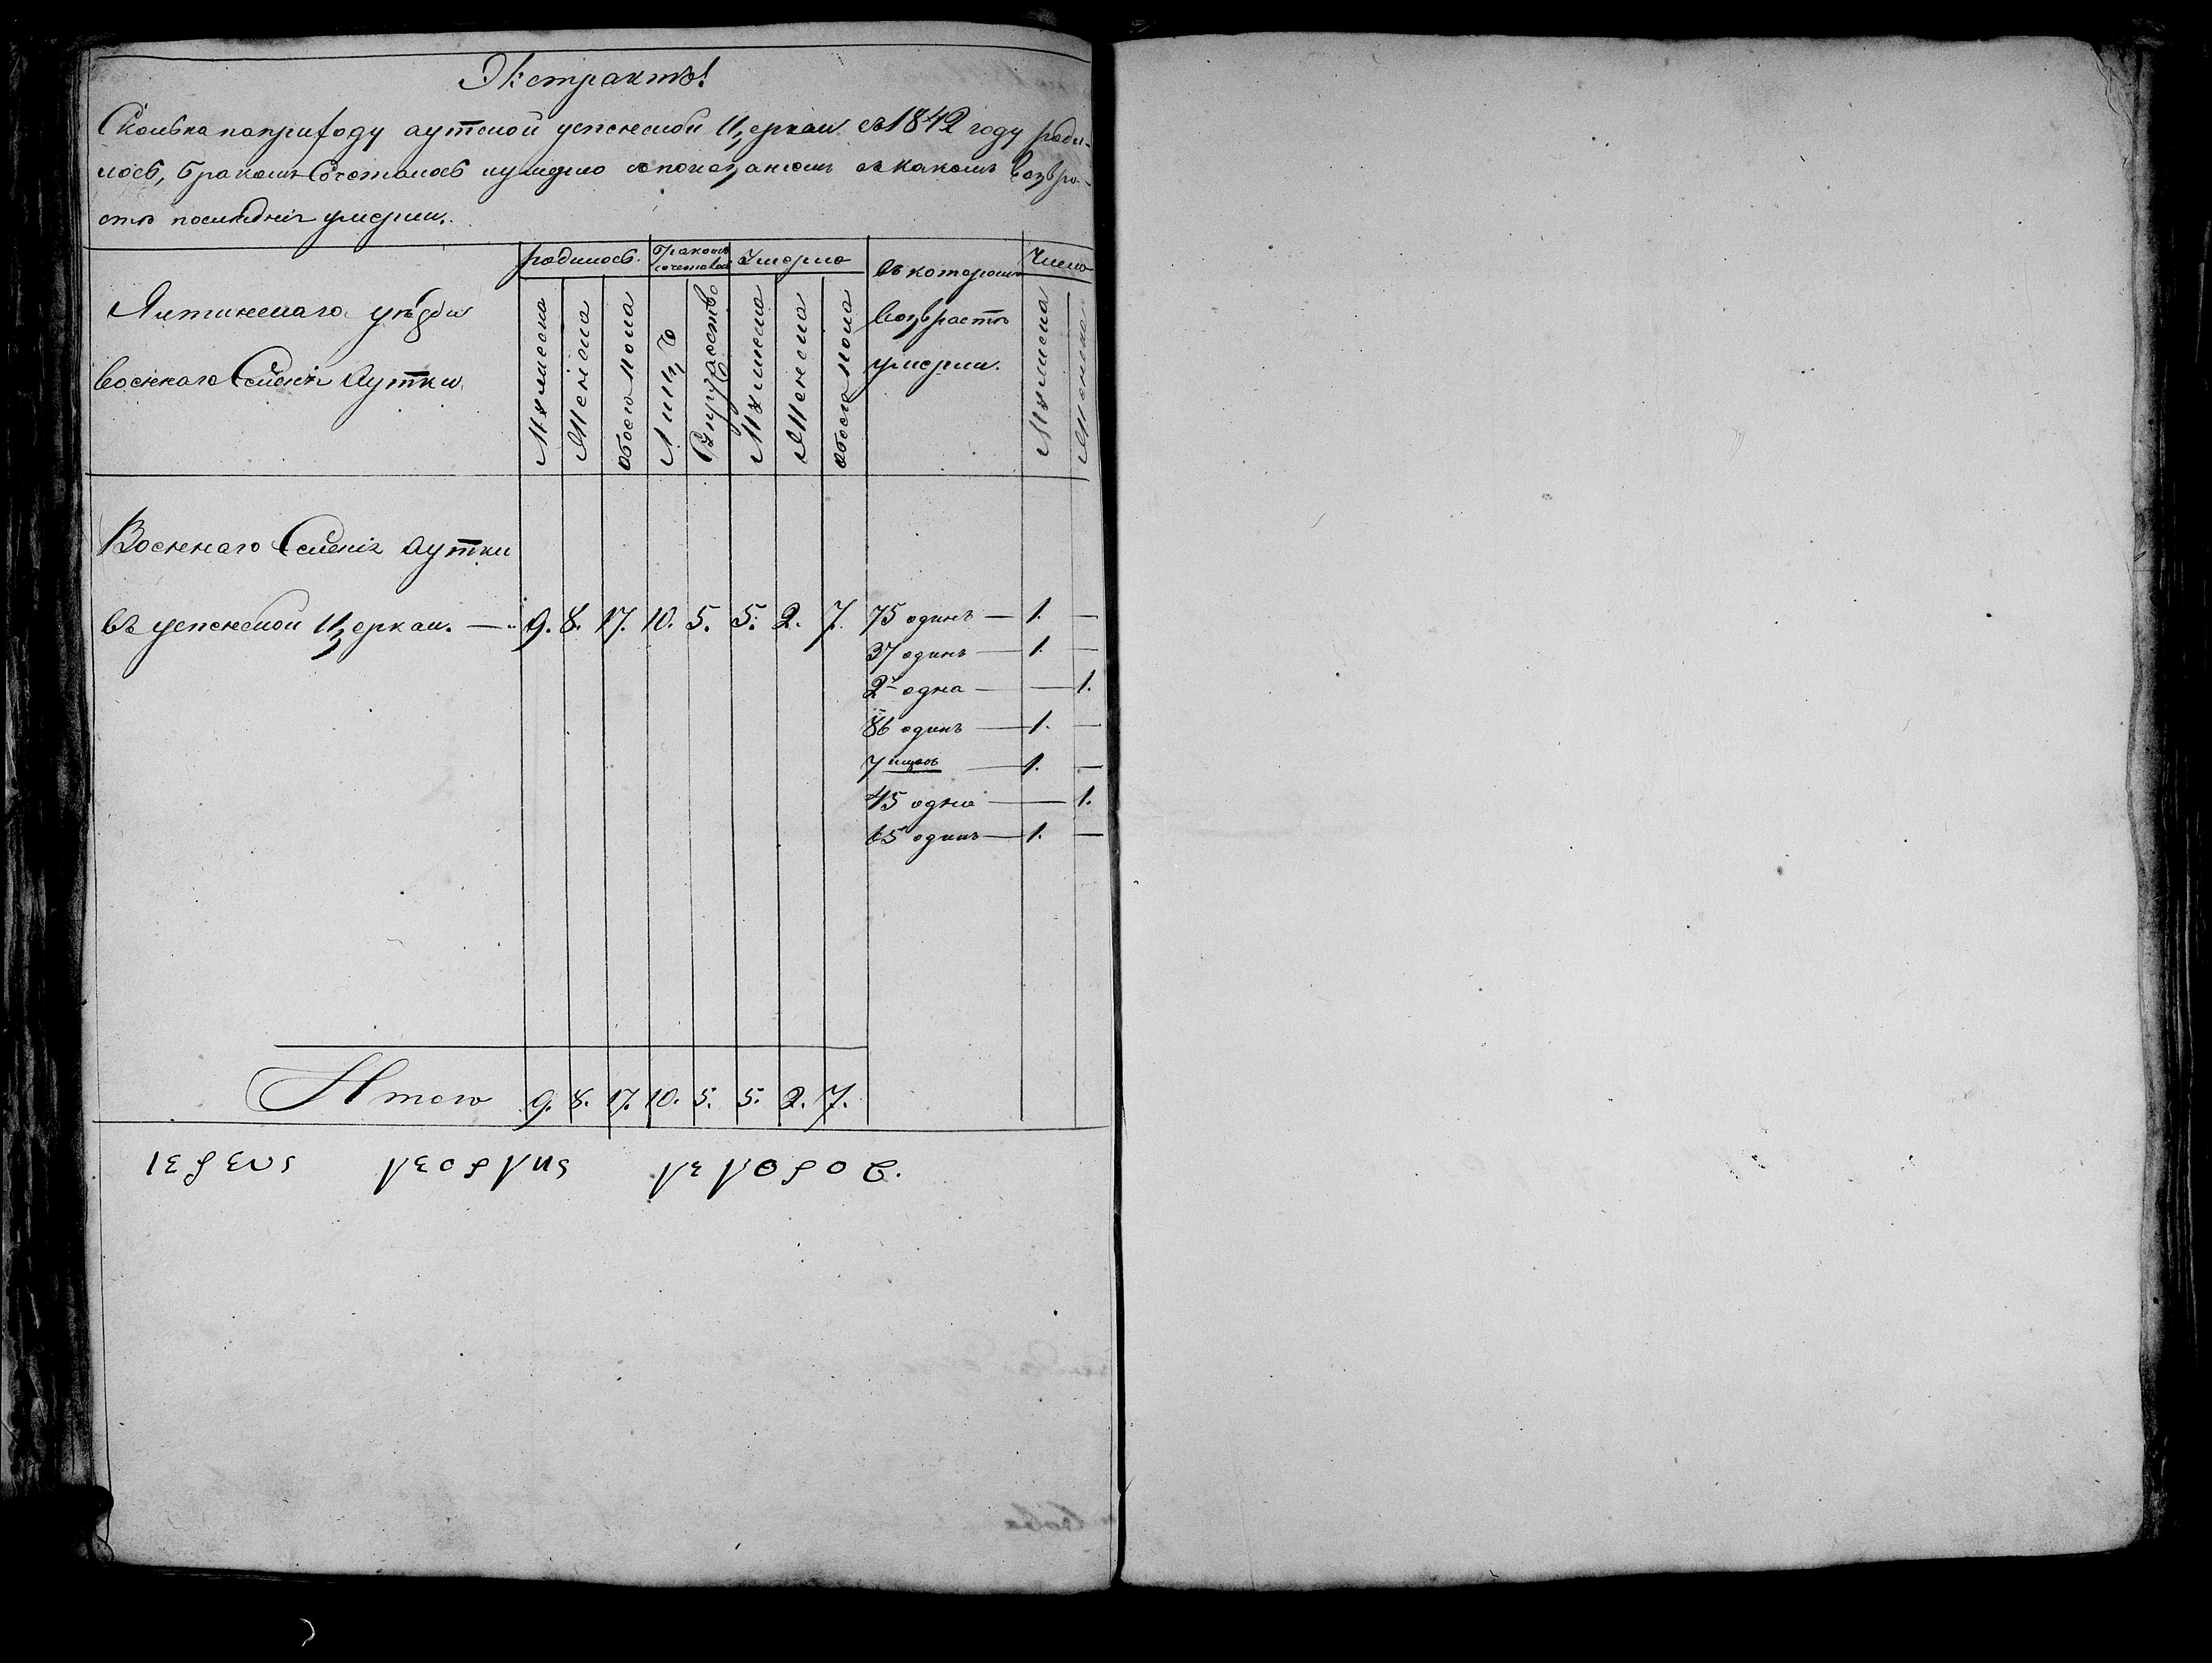 Экстрактъ!
Сколька поприходу аутской успенской Церкви въ 1842 году роди-
лось, бракомъ Сочеталось иумерло споказаніемъ въкакомъ Возро-
стѣ последніи умерли.
Ялтинскаго уѣзда
военнаго Селенія Аутки
родилось.
Мужеска
Женска
обоего пола
бракомъ сочеталось
Лицъ
Супружество
Умерло
Мужеска
Женска
обоего пола
въ которомъ
возрастѣ
умерли.
Число
Мужеска
Женска
Военнаго Селенія Аутки
въ успенской Церкви. — 9. 8. 17. 10. 5. 5. 2. 7. 75 одинъ — 1. —
37 одинъ — 1. —
2 одна — — 1.
86 одинъ — 1. —
7 — 1. —
45 одна — — 1.
65 одинъ — 1. —
Итого 9. 8. 17. 10. 5. 5. 2. 7.